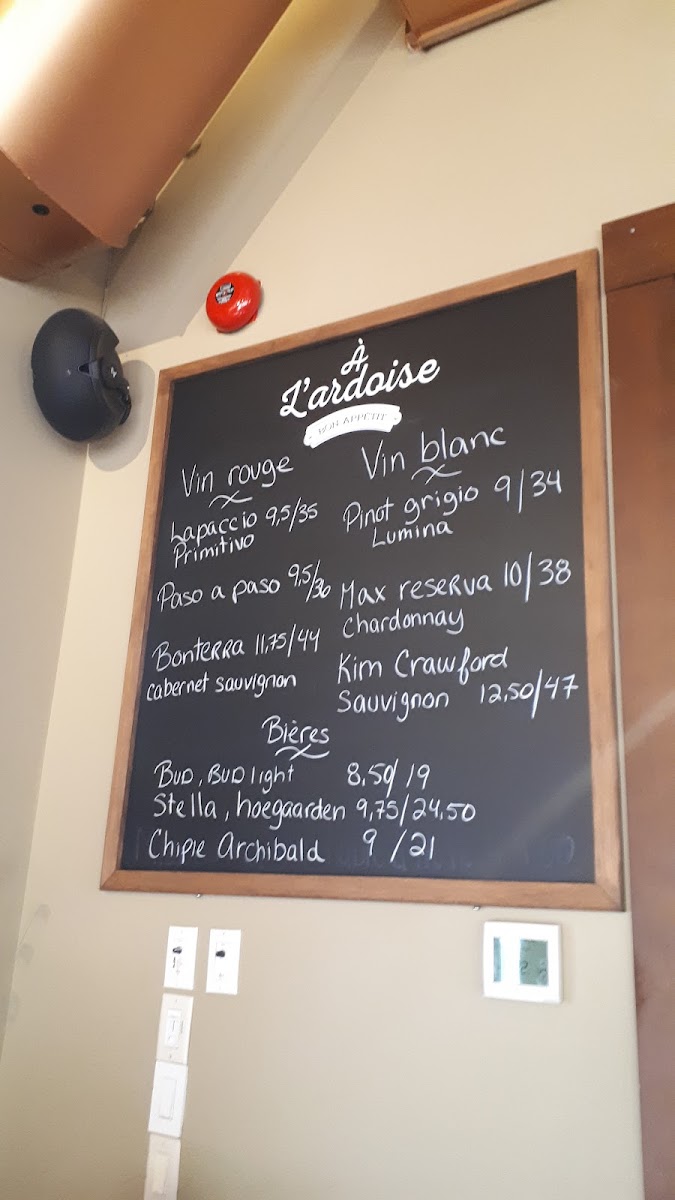 À
L'ardoise
BON APPÉTIT
Vin rouge
Lapaccio 9,5/35
Primitivo
Paso a paso 9,5/36
Bonterra 11,75/44
cabernet sauvignon
Vin blanc
Pinot grigio 9/34
Lumina
Max reserva 10/38
Chardonnay
Kim Crawford
Sauvignon 12,50/47
Bières
Bud, Bud light 8,50/19
Stella, hoegaarden 9,75/24,50
Chipie Archibald 9/21